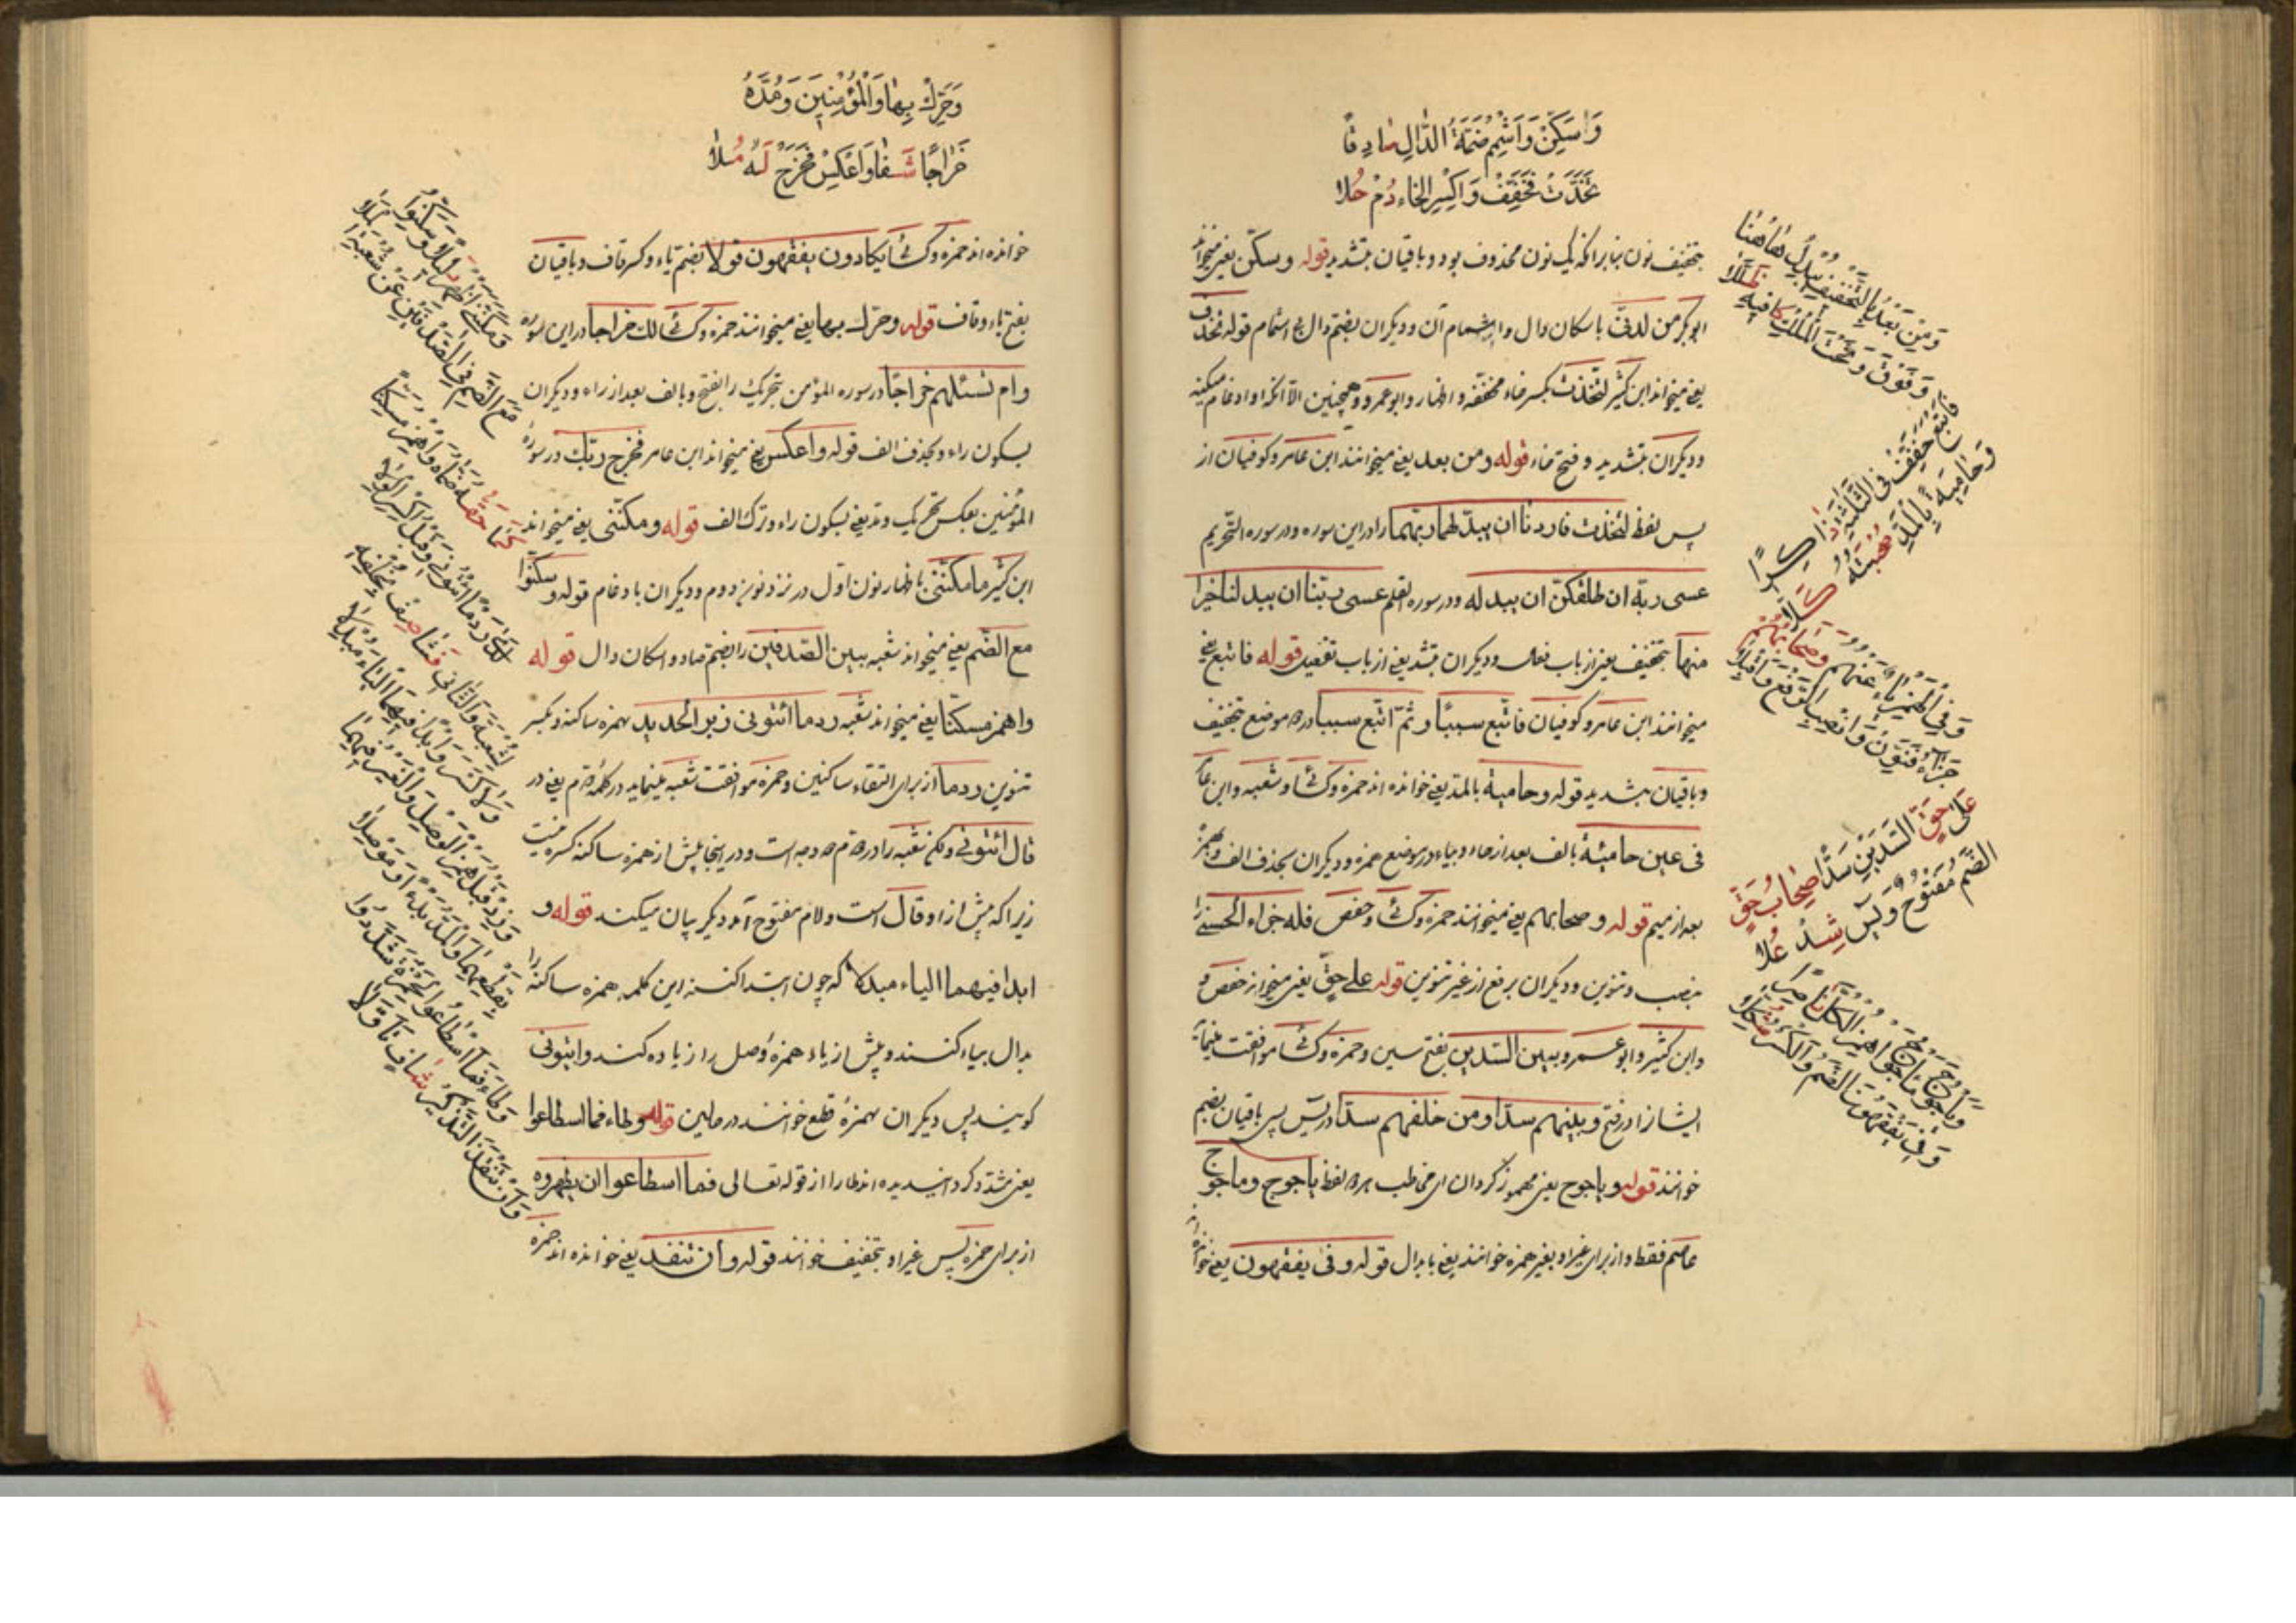 وَاَسْكِنْ وَاَشْمِمْ ضَمَّةَ الدَّالِ صَادِقًا
تَخَذْتَ فَخَفِّفْ وَاكْسِرِ الْخَاءَ دُمْ حُلَا
بتخفیف نون بنابرآنکه یک نون محذوف بود و باقیان بتشدید قوله وسکّن یعنی میخواند
ابوبکر من لدنی باسکان دال واشمام آن و دیکران بضم دال بی اشمام قوله تخذت
یعنی میخواند ابن کثیر لتخذت بکسر خاء مخففه واظهار وابوعمرو همچنین الا آنکه او ادغام میکند
ودیکران بتشدید و فتح خاء قوله ومن بعد یعنی میخوانند ابن عامر وکوفیان از
پس لفظ لتخذت فاردنا ان یبدلهما ربهما را در این سوره ودر سوره التحریم
عسی ربه ان طلقکن ان یبدله ودر سوره القلم عسی ربنا ان یبدلنا خیرا
منها بتخفیف یعنی از باب افعال ودیکران بتشدید یعنی از باب تفعیل قوله فاتبع یعنی
میخوانند ابن عامر وکوفیان فاتبع سببا و ثم اتبع سببا در دو موضع بتخفیف
وباقیان بتشدید قوله وحامیة بالمد یعنی خوانده اند حمزه وکسائی وشعبه وابن عامر
فی عین حامیة بالف بعد از حاء وبیاء در موضع همزه ودیکران بحذف الف وبهمزه
بعد از میم قوله وصحابهم یعنی میخوانند حمزه وکسائی وحفص فله جزاء الحسنی را
بنصب وتنوین ودیکران برفع از غیر تنوین قوله علی حق یعنی میخوانند حفص و
وابن کثیر وابو عمرو بین السدین بفتح سین وحمزه وکسائی موافقت مینمایند
ایشانرا در فتح وبینهم سدا ومن خلفهم سدا در یس پس باقیان بضم
خوانند قوله ویاجوج یعنی مهموز کردان ای مخاطب هر دو لفظ یاجوج وماجوج
عاصم فقط واز برای غیر او بغیر همزه خوانند یعنی بابدال قوله وفی یفقهون یعنی خوانده اند
وَمِنْ بَعْدُ بِالتَّخْفِيفِ يُبْدِلَ هَاهُنَا
وَفَوْقَ وَتَحْتَ الْمُلْكِ كَافِيهِ ظَلَّلَا
فَاَتْبَعَ خَفِّفْ فِي الثَّلَاثَةِ ذَاكِرًا
وَحَامِيَةً بِالْمَدِّ صُحْبَتُهُ كَلَا
وَفِي الْهَمْزِ يَاءٌ عَنْهُمُ وَصِحَابُهُمْ
جَزَاءُ فَنَوِّنْ وَانْصِبِ الرَّفْعَ وَاَقْبَلَا
عَلَى حَقِّ السَّدَّيْنِ سَدًّا صِحَابُ حَقٍّ
الضَّمُّ مَفْتُوحٌ وَيَس شِدْ عُلَا
وَيَاْجُوجَ مَاْجُوجَ اهْمِزِ الْكُلَّ نَاصِرًا
وَفِي يَفْقَهُونَ الضَّمُّ وَالْكَسْرُ شُكِّلَا
وَحَرِّكْ بِهَا وَالْمُؤْمِنِينَ وَمُدَّهُ
خَرَاجًا شَفَا وَاعْكِسْ فَخَرْجُ لَهُ مُلَا
خوانده اند حمزه وکسائی یکادون یفقهون قولا بضم یاء وکسر قاف وباقیان
بفتح یاء وقاف قوله وحرّک بها یعنی میخوانند حمزه وکسائی لک خراجا در این سوره
وام تسئلهم خراجا در سوره المؤمن بتحریک را بفتح وبالف بعد از راء ودیکران
بسکون راء وبحذف الف قوله واعکس یعنی میخواند ابن عامر فخرج ربک در سوره
المؤمنین بعکس تحریک ومد یعنی بسکون راء وترک الف قوله ومکننی یعنی میخواند
ابن کثیر ما مکننی باظهار نون اول در نزد نون دوم ودیکران بادغام قوله وسکنوا
مع الضم یعنی میخواند شعبه بین الصدفین را بضم صاد واسکان دال قوله
واهمز مسکنا یعنی میخواند شعبه ردما ائتونی زبر الحدید بهمزه ساکنه وبکسر
تنوین ردما از برای التقاء ساکنین وحمزه موافقت شعبه مینماید در کلمه دوم یعنی در
قال ائتونی ولکن شعبه را در دوم دو وجه است ودر اینجا پیش از همزه ساکنه کسره نیست
زیرا که پیش از او قال است ولام مفتوح آمد دیکر بیان میکند قوله و
ابدا فیهما الیاء مبدلا که چون ابتدا کنند این کلمه همزه ساکنه را
بدال بیاء کنند وپیش از یاء همزه وصل را زیاده کنند وایتونی
کویند پس دیکران بهمزه قطع خوانند در حالین قوله وطاء فما اسطاعوا
یعنی مشدد کردانیدیده اند طا را از قوله تعالی فما اسطاعوا ان یظهروه
از برای حمزه پس غیر او بتخفیف خوانند قوله وان تنفد یعنی خوانده اند حمزه
وَمَكَّنَنِي اَظْهِرْ دَلِيلًا وَسَكَّنُوا
مَعَ الضَّمِّ فِي الصُّدْفَيْنِ عَنْ شُعْبَةَ الْمَلَا
كَمَا حَقُّهُ ضَمَّاهُ وَاهْمِزْ مُسَكِّنًا
لَدَى رَدْمًا ائْتُونِي وَقَبْلُ اكْسِرِ الْوِلَا
لِشُعْبَةَ وَالثَّانِي فَشَا صِفْ بِخُلْفِهِ
وَلَا كَسْرَ وَابْدَاْ فِيهِمَا الْيَاءَ مُبْدِلَا
وَزِدْ قَبْلُ هَمْزَ الْوَصْلِ وَالْغَيْرُ فِيهِمَا
بِقَطْعِهِمَا وَالْمَدِّ بَدْءًا وَمَوْصِلَا
وَطَاءَ فَمَا اسْطَاعُوا لِحَمْزَةَ شَدَّدُوا
وَاَنْ يَنْفَدَ التَّذْكِيرُ شَافٍ تَاَوَّلَا